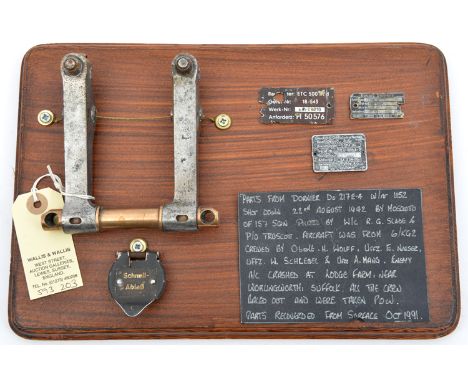 ETC 500
18-643
50576
Schnell-
Ablaß
WALLIS & WALLIS
WEST STREET
AUCTION GALLERIES,
LEWES, SUSSEX,
ENGLAND
593 203
PARTS FROM DORNIER Do 217E-4 W/Nr 1152
SHOT DOWN 22nd AUGUST 1942 BY MOSQUITO
OF 157 SQN PILOTED BY W/C R.G. SLADE &
P/O TRUSCOTT. AIRCRAFT WAS FROM 6/KG2
CREWED BY Oblt. H. WOLFF, Uffz. E.
Uffz. W. SCHLEGEL & A. MANG. ENEMY
A/C CRASHED AT LODGE FARM, NEAR
WORLINGWORTH. SUFFOLK. ALL THE CREW
BALED OUT AND WERE TAKEN P.O.W.
PARTS RECOVERED FROM SURFACE OCT 1991.